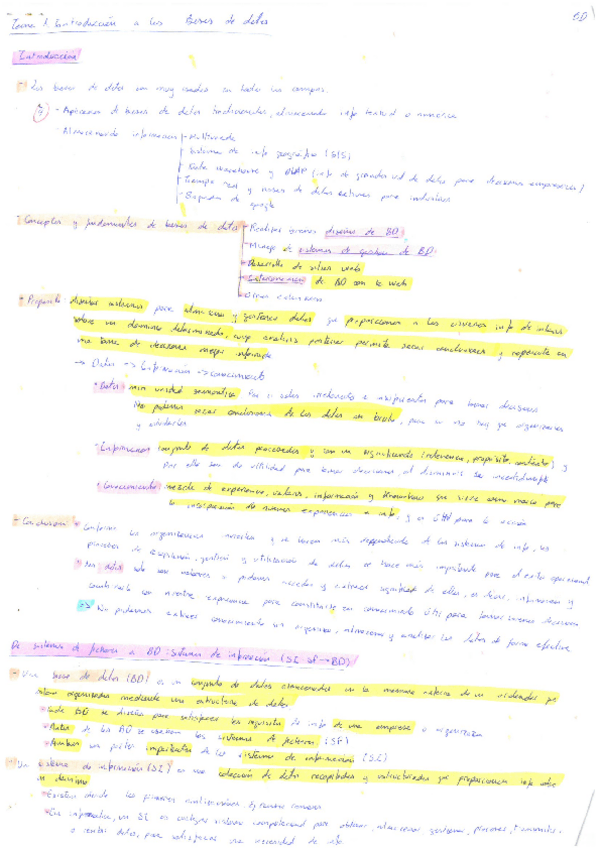 Tema 1: Introducción a las Bases de datos
BD
Introducción
- Las bases de datos son muy usadas en todos los campos.
- Aplicaciones de bases de datos tradicionales, almacenando info textual o numérica
- Almacenando información - Multimedia
- Sistemas de info geográfica (GIS)
- Data warehouse y OLAP (info de grandes vol de datos para decisiones empresariales)
- Tiempo real y bases de datos activas para
- de google
- Conceptos y fundamentos de bases de datos - Realizar buenos diseños de BD
- Manejo de sistemas de gestión de BD
- Desarrollo de sitios web
- de BD con la web
- Propósito: diseñar sistemas para almacenar y gestionar datos que proporcionen a los usuarios info de interés
sobre un dominio determinado, cuyo análisis posterior permite sacar conclusiones y
una toma de decisiones mejor informada
→ Datos → Información → conocimiento
• Datos: min unidad semántica. Por sí solos irrelevantes e para tomar decisiones
No podemos sacar conclusiones de los datos en bruto, para no hay que organizarlos
y
• Información: conjunto de datos procesados y con un significado (relevancia, propósito, contexto) y
Por ello son de utilidad para tomar decisiones, al disminuir la incertidumbre
• Conocimiento: mezcla de experiencia, valores, información y que sirve como marco para
la incorporación de nuevas experiencias e info, y es útil para la acción
- Conclusiones: • Conforme las organizaciones y se hacen más dependientes de los sistemas de info, los
procesos de recopilación, gestión y utilización de datos se hace más importante para el éxito
• Los datos solo son valiosos si podemos acceder y extraer significado de ellos, es decir, información y
con nuestra experiencia para constituir un conocimiento útil para tomar buenas decisiones
=> No podemos extraer conocimiento sin organizar, almacenar y analizar los datos de forma efectiva
De sistemas de ficheros a BD: Sistemas de información (SI SF → BD)
- Una base de datos (BD) es un conjunto de datos almacenados en la memoria externa de un ordenador que
están organizados mediante una estructura de datos
• Cada BD se diseña para satisfacer los requisitos de info de una empresa u organización
• Antes de las BD se usaban los sistemas de ficheros (SF)
• Ambos son partes importantes de los sistemas de información (SI)
- Un sistema de información (SI) es una colección de datos recopilados y estructurados que proporcionan info sobre
un dominio
• Existen desde las primeras civilizaciones,
• En informática, un SI es cualquier sistema computacional para obtener, almacenar, gestionar, procesar,
o recibir datos, para satisfacer una necesidad de info